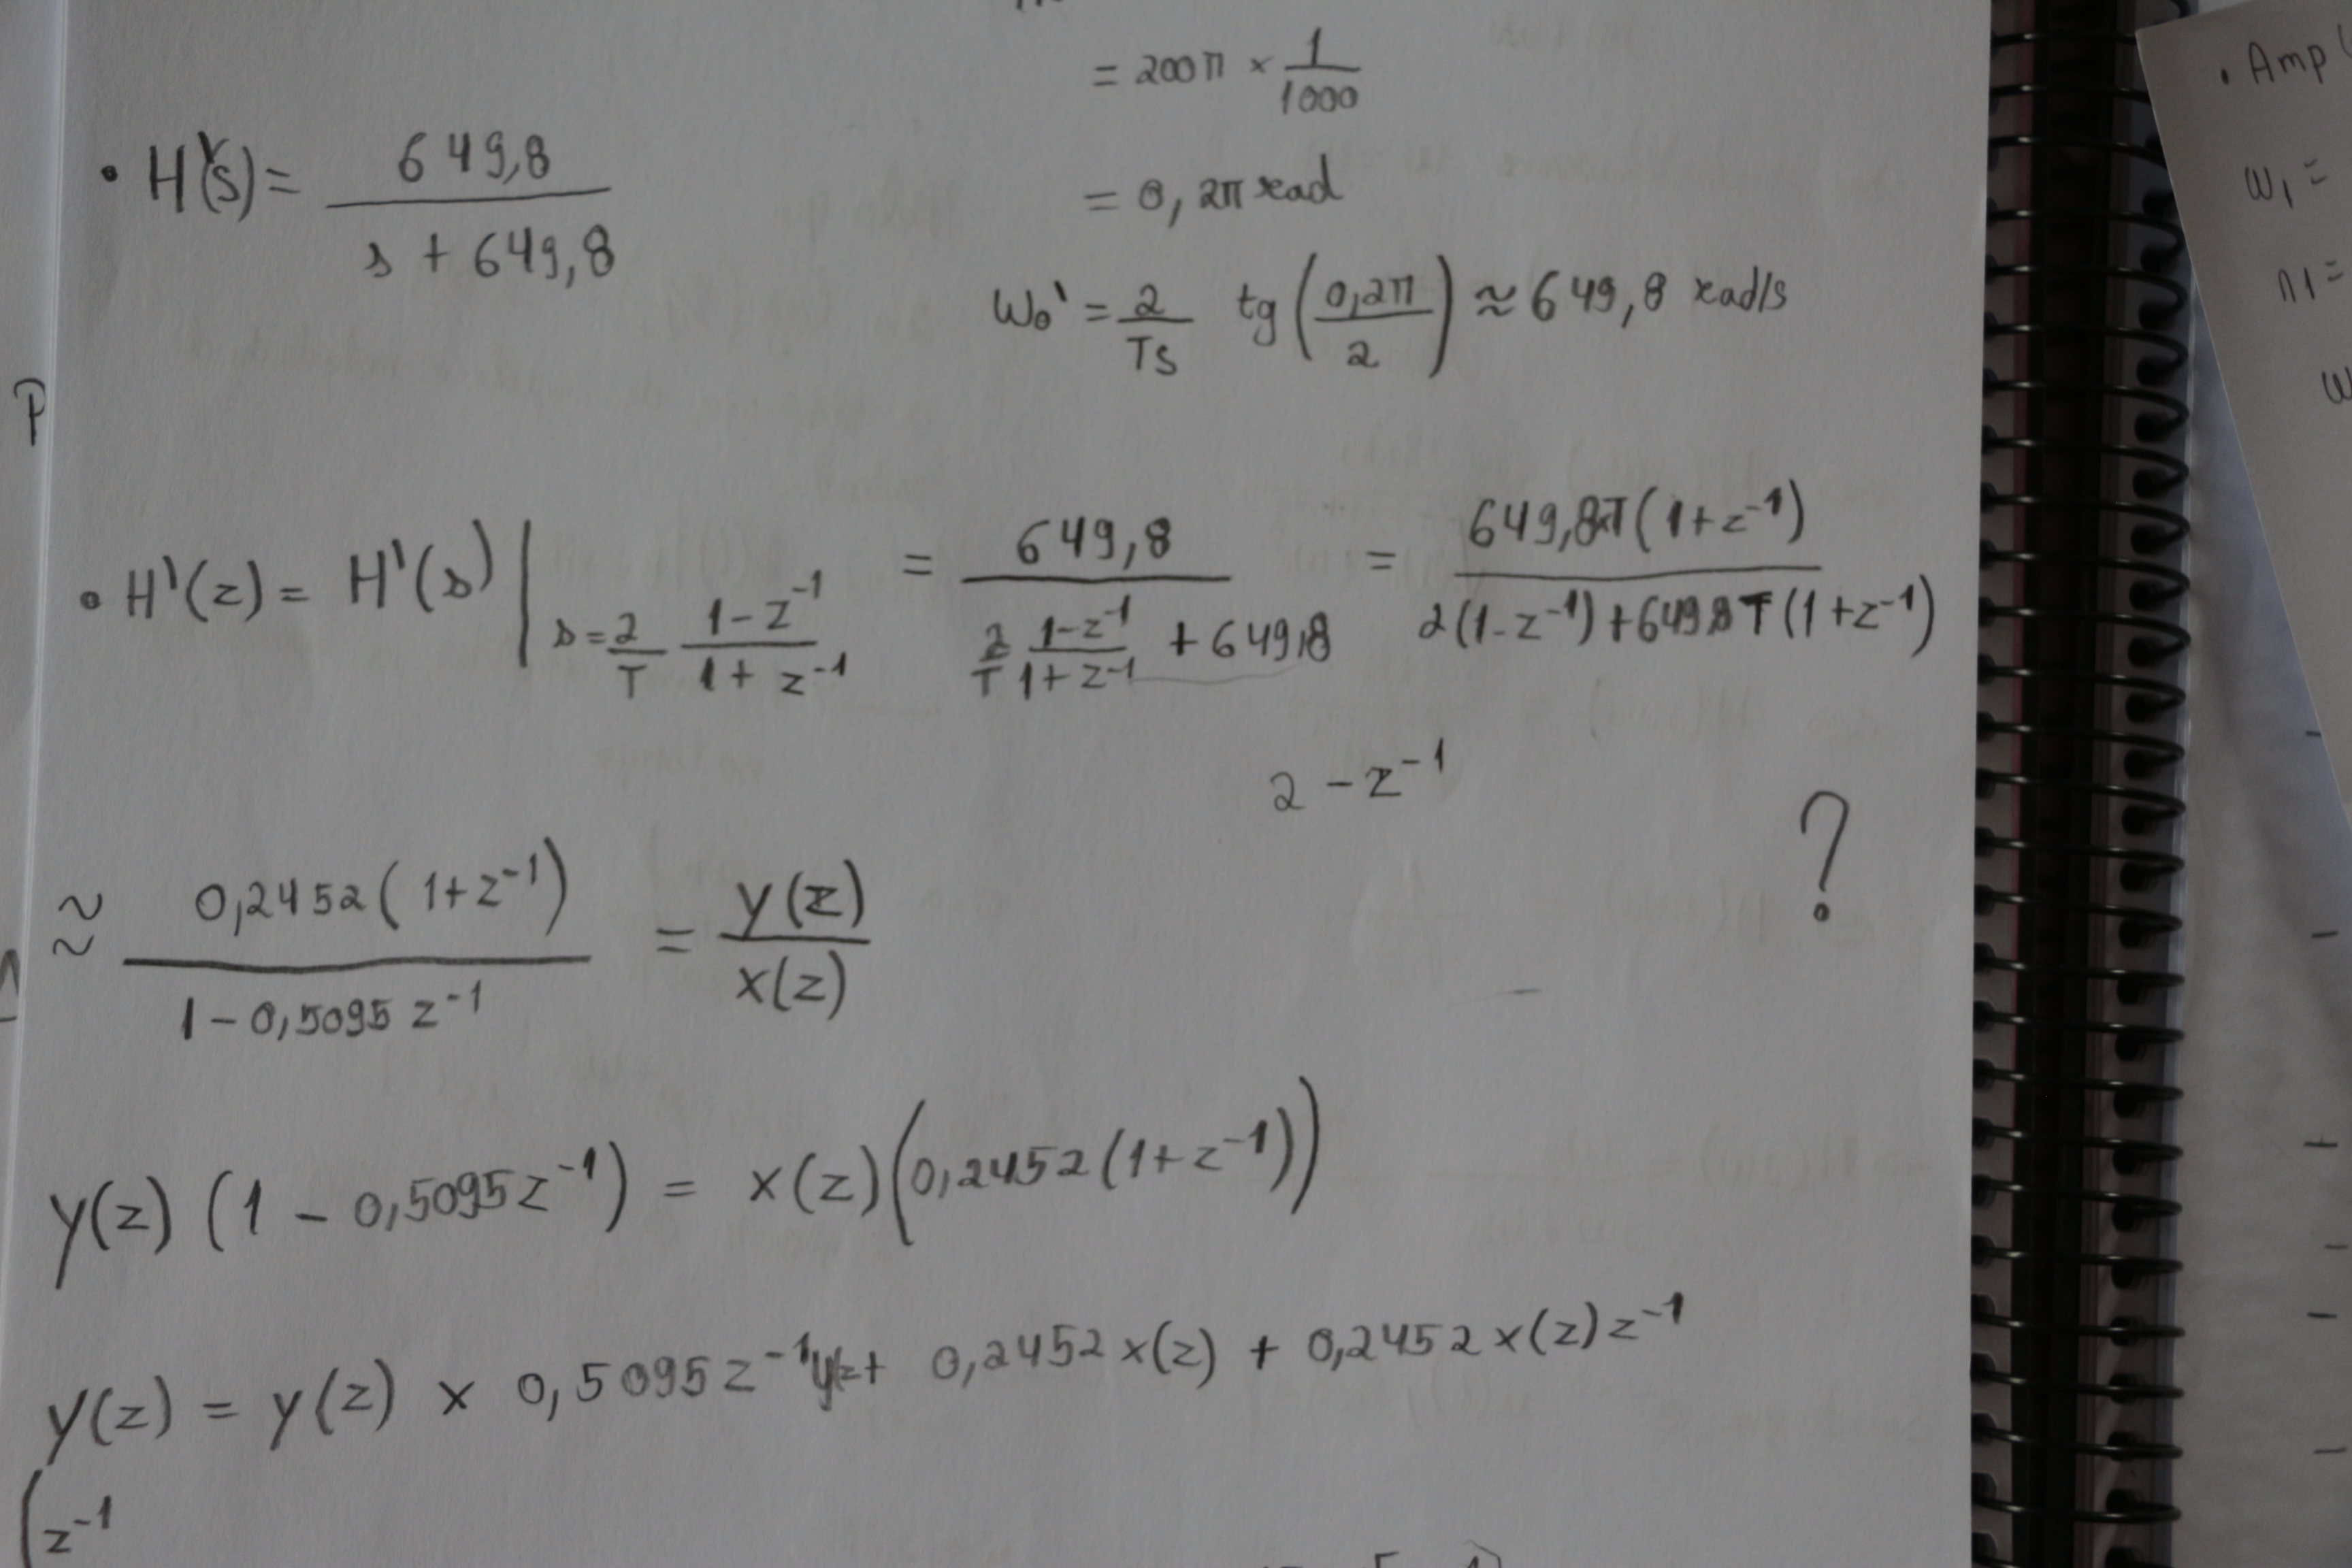 = 200π × 1/1000
• H'(s) = 649,8 / (s + 649,8)
= 0,2π rad
W₀' = 2/Ts tg(0,2π/2) ≈ 649,8 rad/s
P
• H'(z) = H'(s) | s = 2/T (1 - z⁻¹)/(1 + z⁻¹) = 649,8 / (2/T (1 - z⁻¹)/(1 + z⁻¹) + 649,8) = 649,8T(1 + z⁻¹) / (2(1 - z⁻¹) + 649,8T(1 + z⁻¹))
2 - z⁻¹
?
≈ 0,2452(1 + z⁻¹) / (1 - 0,5095 z⁻¹) = y(z)/x(z)
y(z) (1 - 0,5095z⁻¹) = x(z)(0,2452(1 + z⁻¹))
y(z) = y(z) × 0,5095z⁻¹ y(z + 0,2452 x(z) + 0,2452 x(z) z⁻¹
(z⁻¹
• Amp
W₁ =
n1 =
W